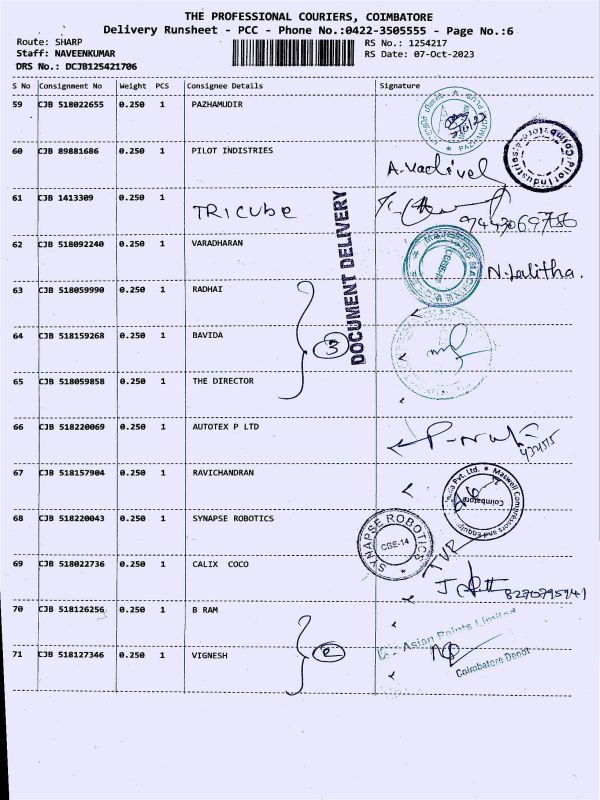 THE PROFESSIONAL COURIERS, COIMBATORE
Delivery Runsheet - PCC - Phone No.:0422-3505555 - Page No.:6
Route: SHARP
Staff: NAVEENKUMAR
DRS No.: DCJB125421706
RS No.: 1254217
RS Date: 07-Oct-2023
S No Consignment No Weight PCS Consignee Details Signature
59 CJB 518022655 0.250 1 PAZHAMUDIR
60 CJB 89881686 0.250 1 PILOT INDISTRIES
A. Vadivel
Pilot Industries
61 CJB 1413309 0.250 1 TRICUBE
9443069786
62 CJB 518092240 0.250 1 VARADHARAN
N. Lalitha.
DOCUMENT DELIVERY
63 CJB 518059990 0.250 1 RADHAI
64 CJB 518159268 0.250 1 BAVIDA
3
65 CJB 518059858 0.250 1 THE DIRECTOR
66 CJB 518220069 0.250 1 AUTOTEX P LTD
67 CJB 518157904 0.250 1 RAVICHANDRAN
Maswell Compressors and Equip. India Pvt. Ltd.
Coimbatore
68 CJB 518220043 0.250 1 SYNAPSE ROBOTICS
SYNAPSE ROBOTICS
CBE-14
TVR
69 CJB 518022736 0.250 1 CALIX COCO
8270795941
70 CJB 518126256 0.250 1 B RAM
Asian Paints Limited
71 CJB 518127346 0.250 1 VIGNESH
2
Coimbatore Depot